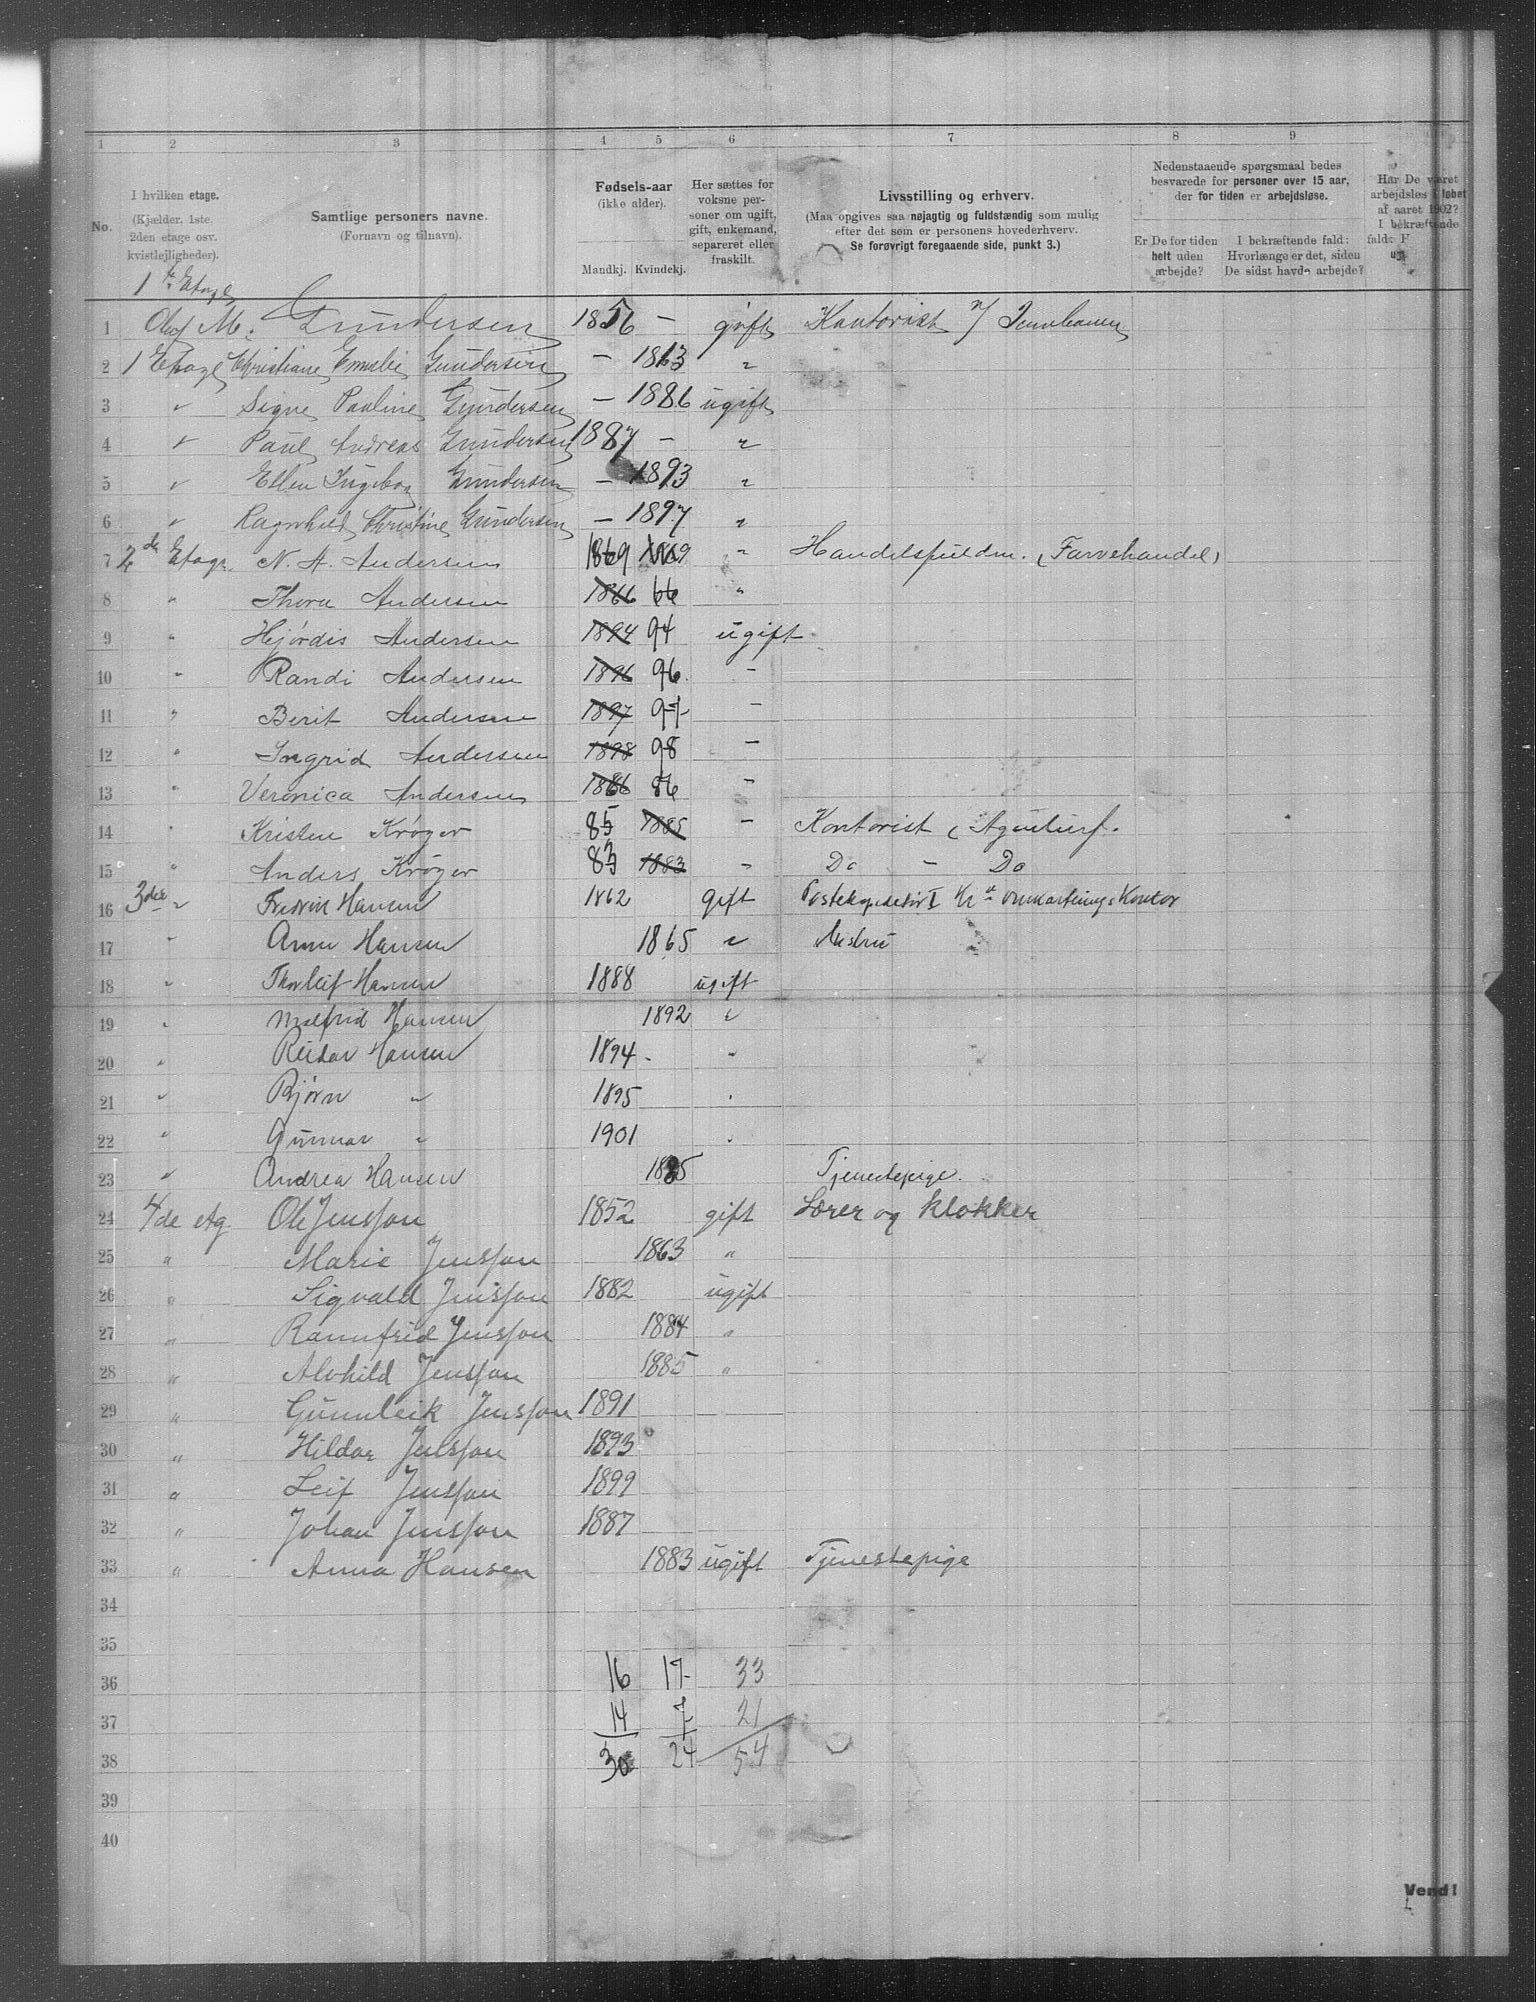 1 2 3 4 5 6 7 8 9
No.
I hvilken etage. (Kjælder, 1ste, 2den etage osv. kvistlejligheder).
Samtlige personers navne. (Fornavn og tilnavn).
Fødsels-aar (ikke alder). Mandkj. Kvindekj.
Her sættes for voksne personer om ugift, gift, enkemand, separeret eller fraskilt.
Livsstilling og erhverv. (Maa opgives saa nøjagtig og fuldstændig som mulig efter det som er personens hovederhverv. Se forøvrigt foregaaende side, punkt 3.)
Nedenstaaende spørgsmaal bedes besvarede for personer over 15 aar, der for tiden er arbejdsløse.
Er De for tiden helt uden arbejde?
I bekræftende fald: Hvorlænge er det, siden De sidst havde arbejde?
Har De været arbejdsløs i løbet af aaret 1902? I bekræftende fald:
1 1ste Etage Oluf M. Gundersen 1856 — gift Kantorist v/ Jernbanen
2 1 Etage Christiane Gundersen — 1863 "
3 " Signe Pauline Gundersen — 1886 ugift
4 " Paul Andreas Gundersen 1887 — "
5 " Ellen Ingeborg Gundersen — 1893 "
6 " Ragnhild Christine Gundersen — 1897 "
7 2de Etage N. A. Andersen 1869 1869 " Handelsfuldm. (Farvehandel)
8 " Thora Andersen 1866 66 "
9 " Hjørdis Andersen 1894 94 ugift
10 " Randi Andersen 1896 96 -
11 " Berit Andersen 1897 97 -
12 " Ingrid Andersen 1898 98 -
13 " Veronica Andersen 1886 86 -
14 " Kristen Krøger 85 1885 - Kontorist (Agenturf.
15 " Anders Krøger 83 1883 - Do - Do
16 3die " Fredrik Hansen 1862 gift Postekspeditør I Kra omkarteringskontor
17 " Anna Hansen 1865 " Hustru
18 " Thorleif Hansen 1888 ugift
19 " Malfrid Hansen 1892 "
20 " Reidar Hansen 1894 - "
21 " Bjørn " 1895 "
22 " Gunnar " 1901 "
23 " Andrea Hansen 1885 Tjenestepige.
24 4de etg Ole Jensson 1852 gift Lærer og klokker
25 " Marie Jensson 1863 "
26 " Sigvald Jensson 1882 ugift
27 " Rannfrid Jensson 1884 "
28 " Alvhild Jensson 1885 "
29 " Gunnleik Jensson 1891
30 " Hildar Jensson 1893
31 " Leif Jensson 1899
32 " Johan Jensson 1887
33 " Anna Hansen 1883 ugift Tjenestepige
34
35
36 16 17 33
37 14 7 21
38 30 24 54
39
40
Vend!